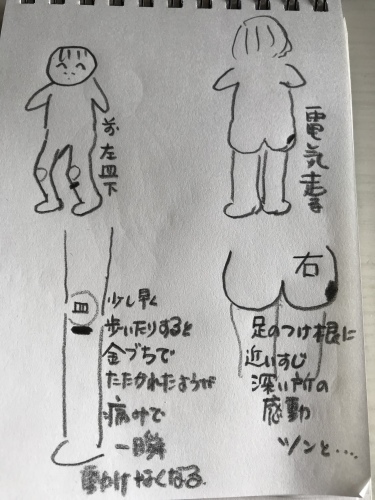 前左皿下
電気走る
皿
少し早く
歩いたりすると
金づちで
たたかれたような
痛みで
一瞬
動かけなくなる
右
足のつけ根に
近いすじ
深い所の
感動
ツンと・・・・